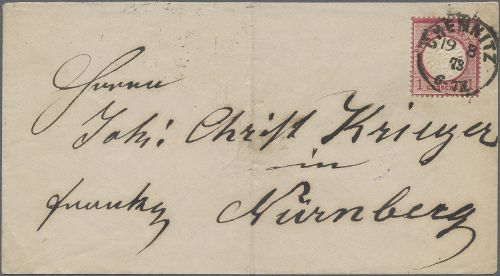 CHEMNITZ
19 8
73
Herrn
Joh: Christ Krieger
in
franko Nürnberg